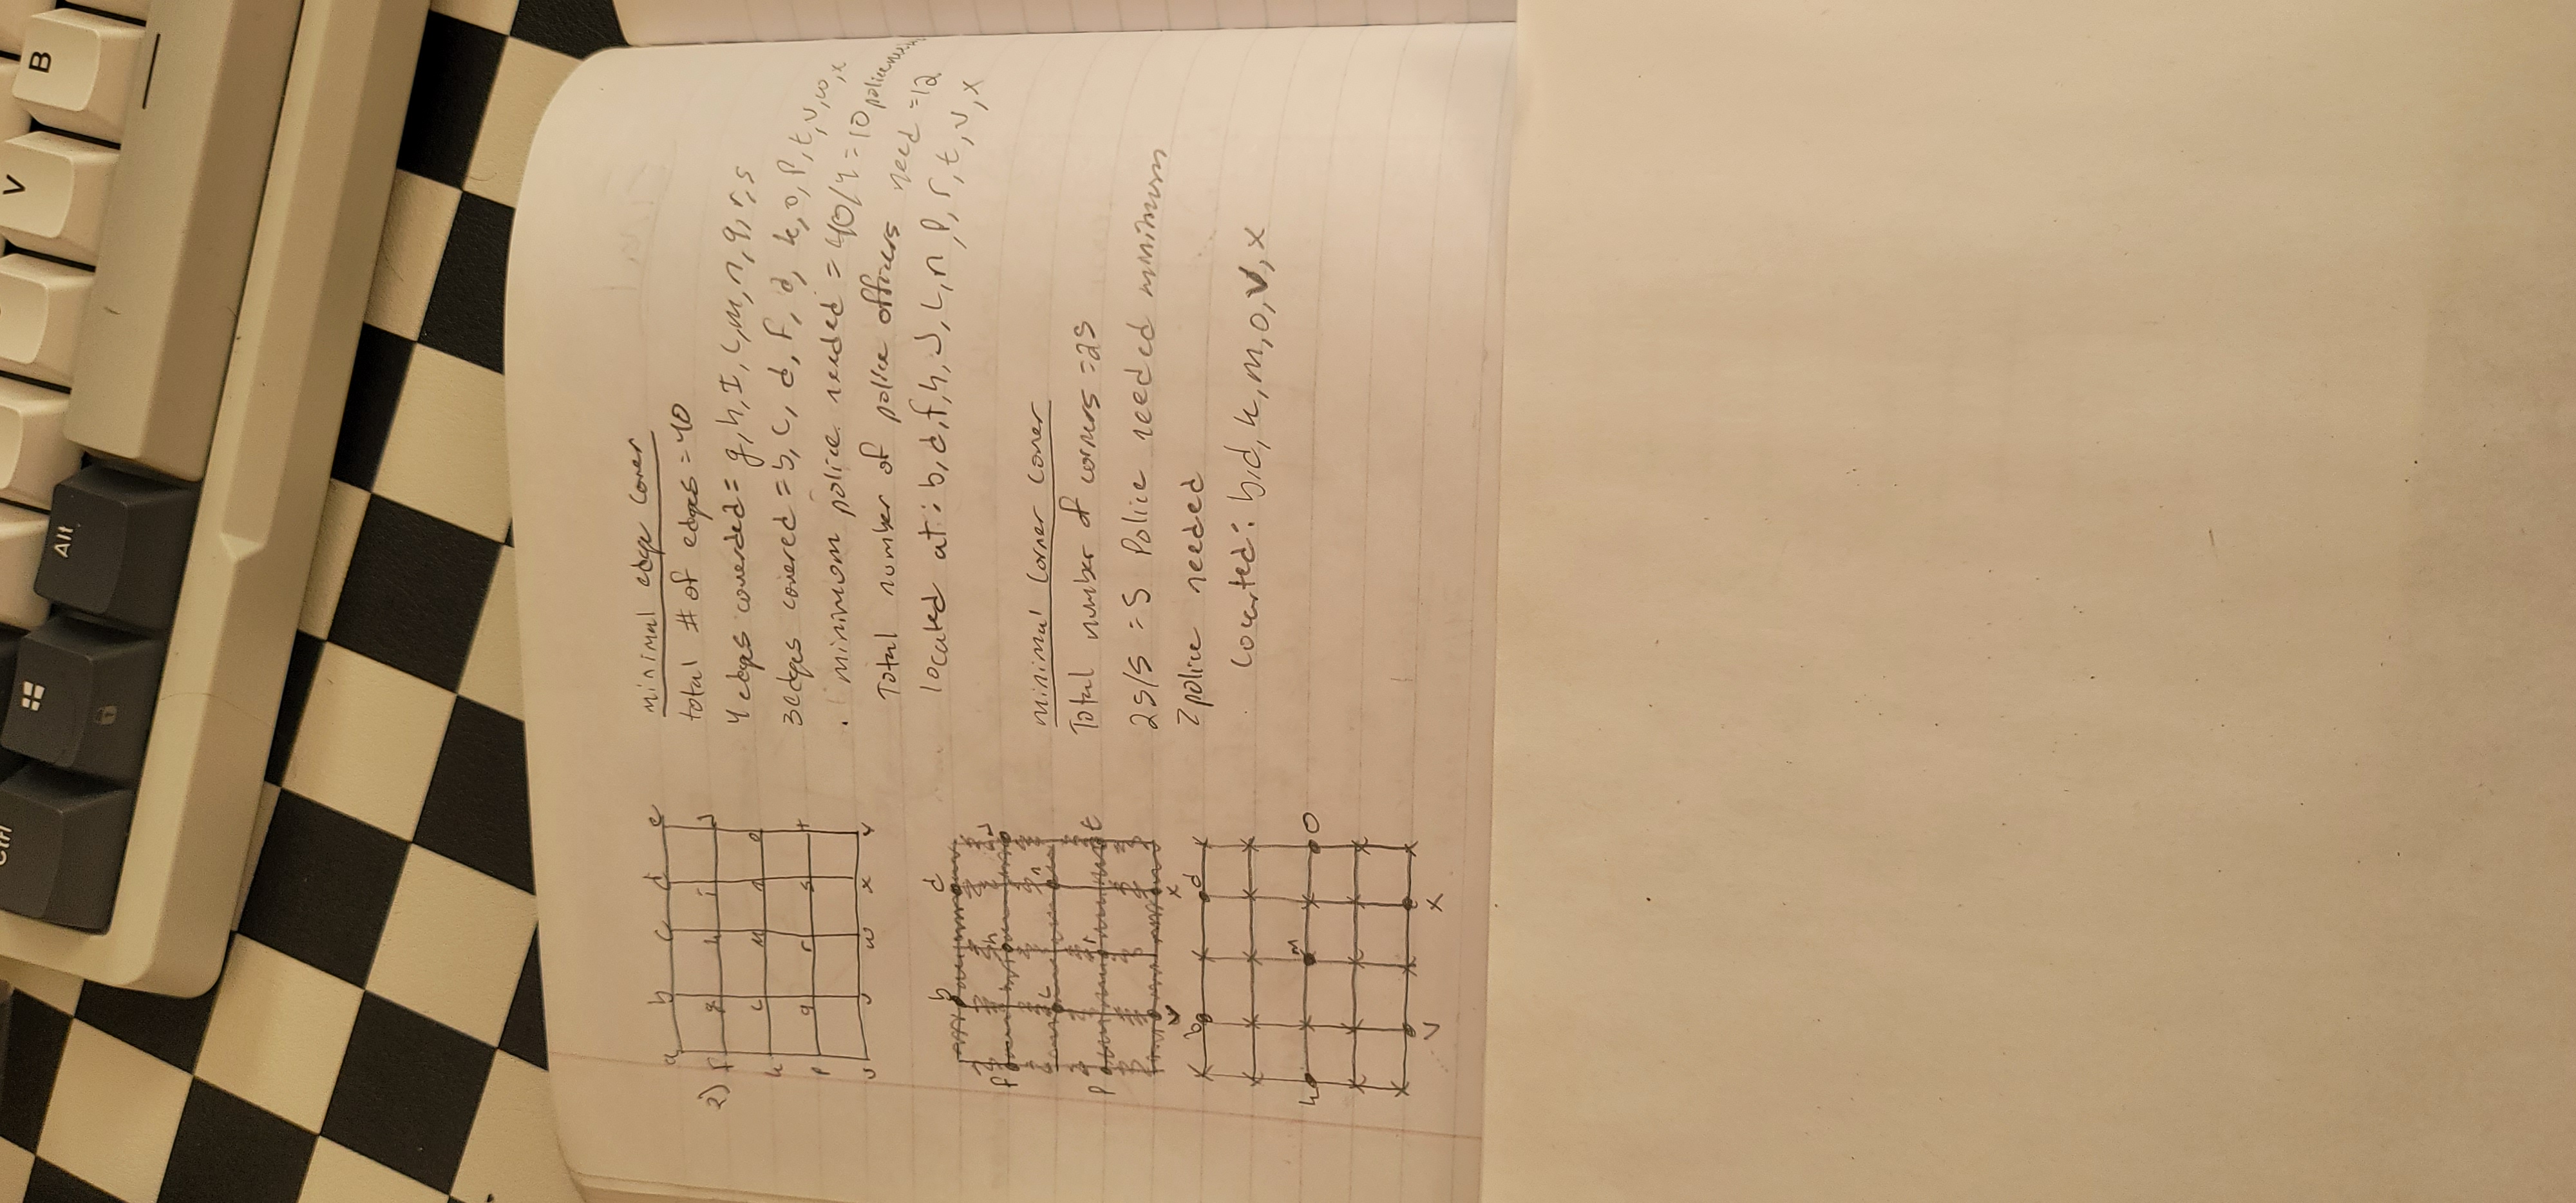 Ctrl
Alt
V
B
a b c d e
2) f g h i J
k L m n o
p q r s t
u v w x y
minimal edge cover
total # of edges = 40
4 edges coverded = g, h, I, L, m, n, q, r, s
3 edges covered = b, c, d, f, J, k, o, p, t, v, w, x
. minimum police needed = 40/4 = 10 police
Total number of police officers need = 12
located at: b, d, f, h, J, L, n, p, r, t, v, x
b d
f h J
L n
p r t
v x
minimal corner cover
Total number of corners = 25
25/5 = 5 Police needed minimum
7 police needed
Located: b, d, k, m, o, v, x
b d
k m o
v x